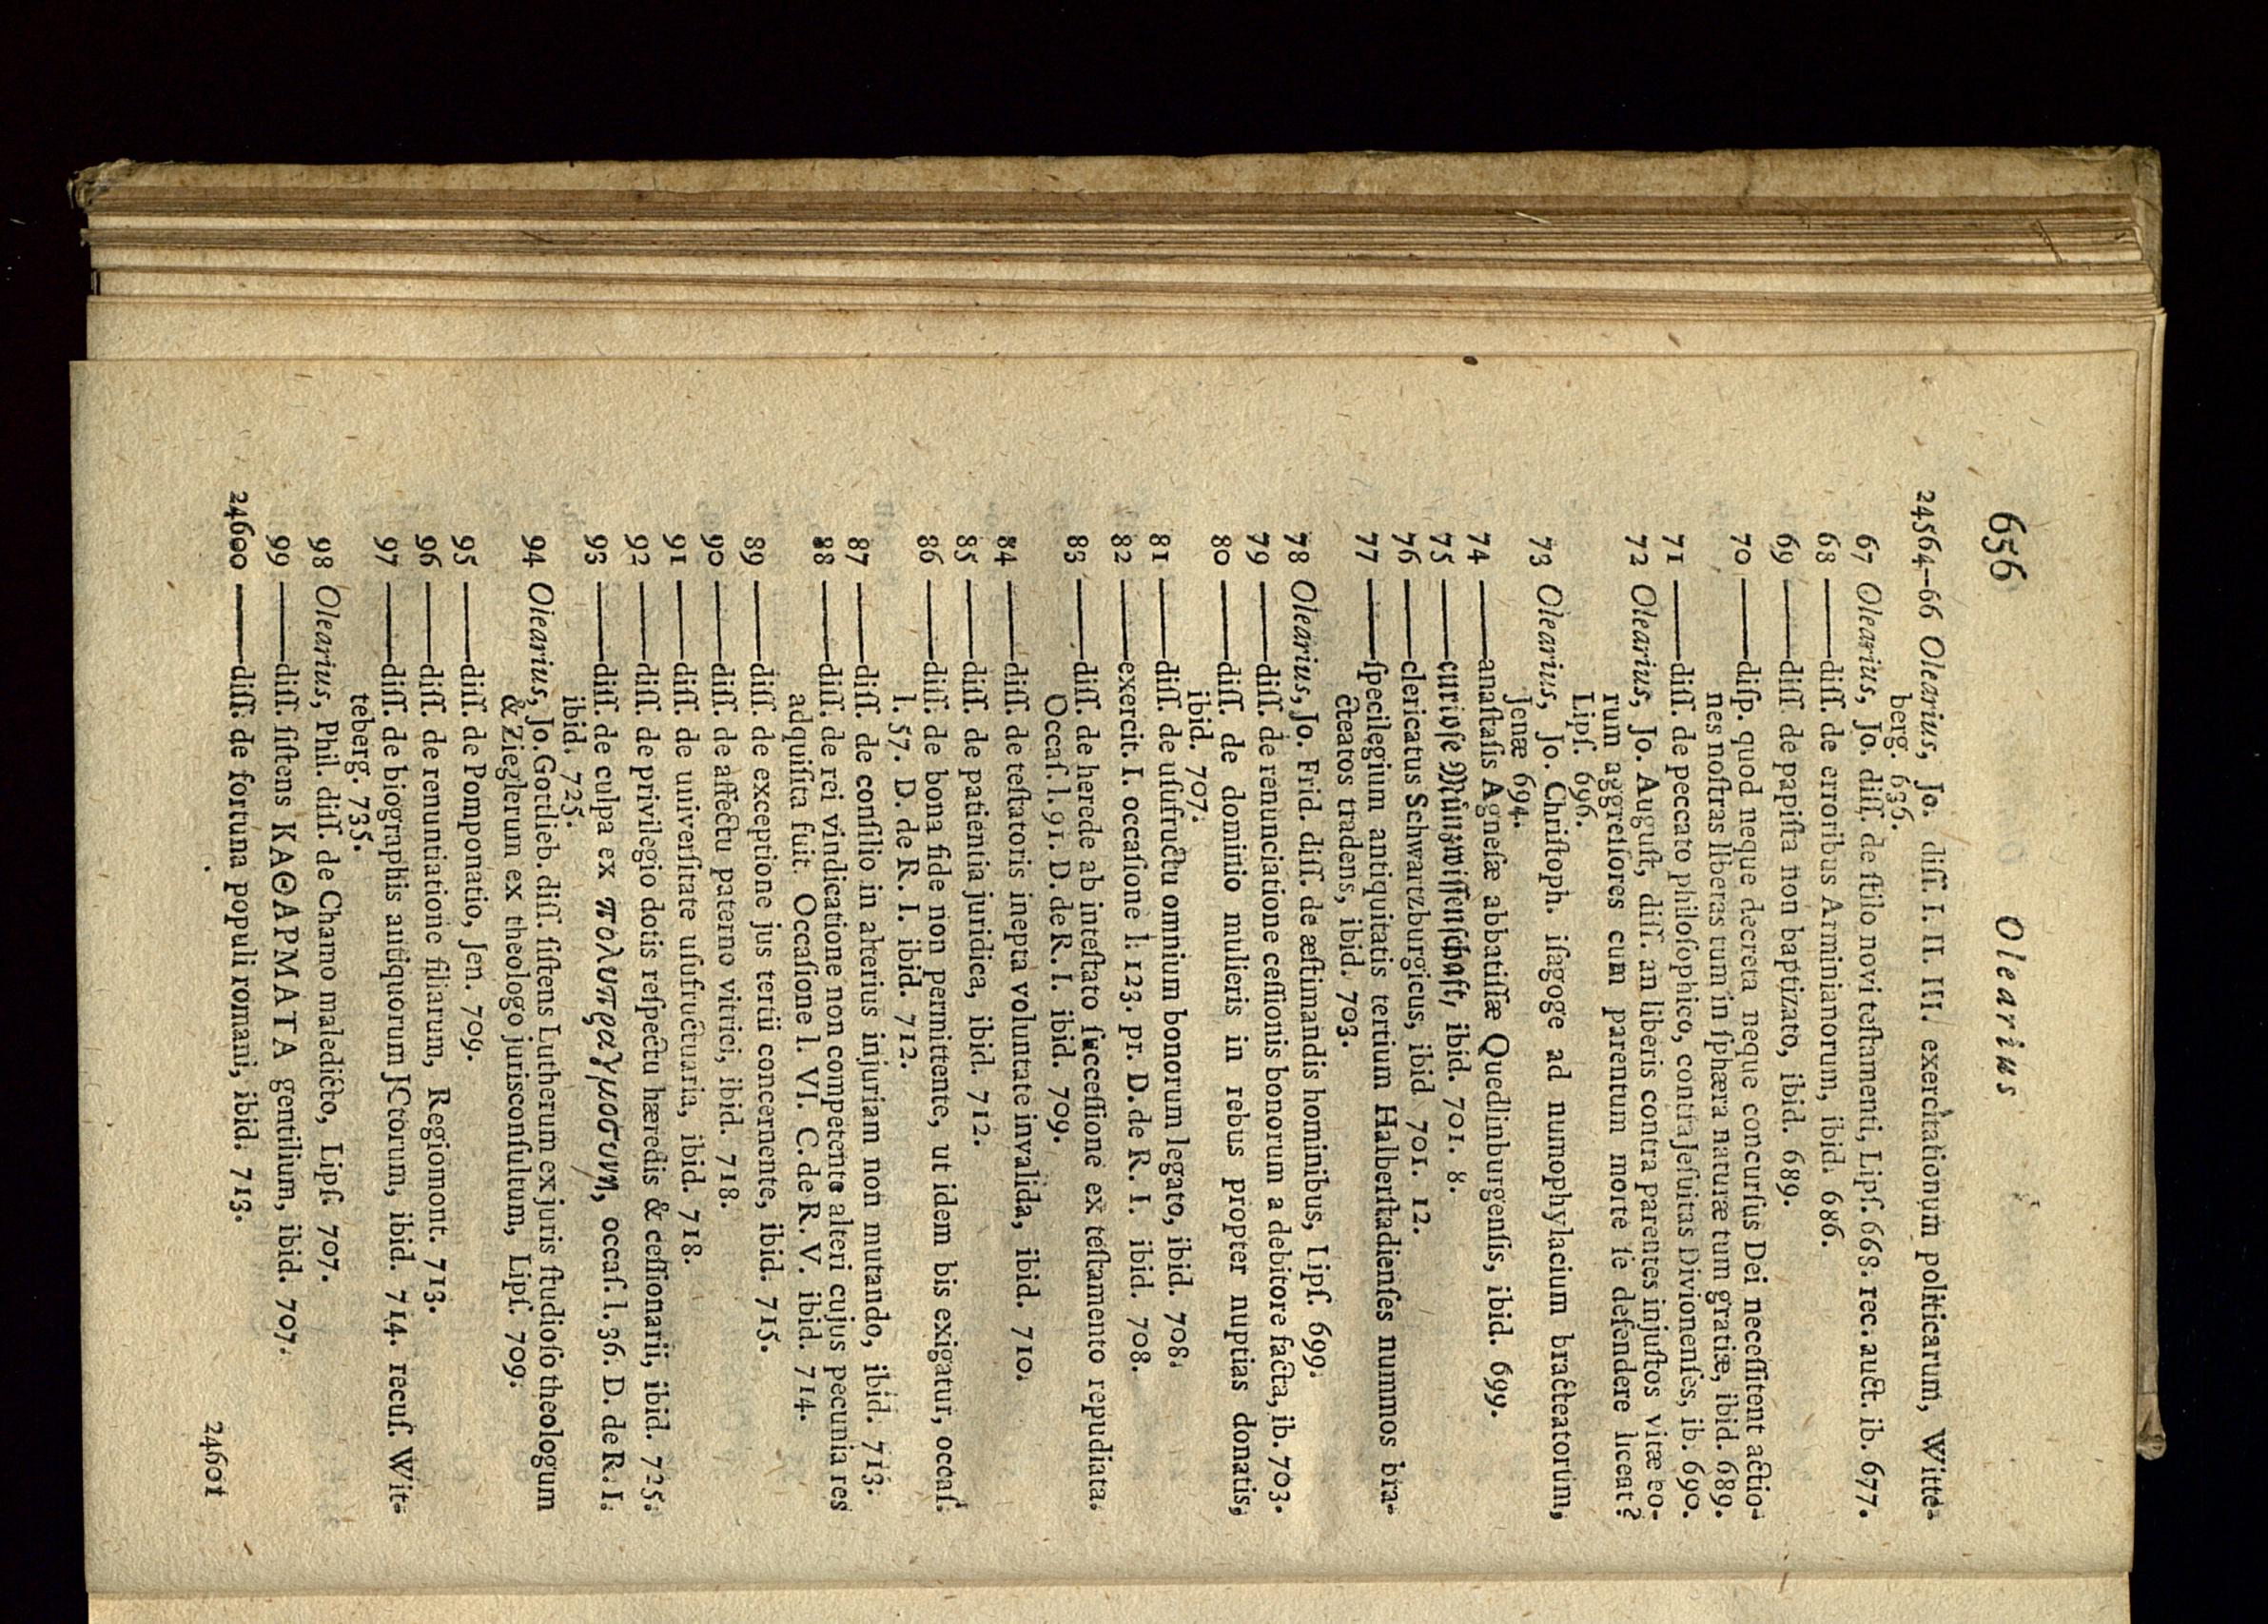 656 Olearius
24564-66 Olearius, Jo. diſſ. I. II. III. exercitationum politicarum, Witte-
berg. 636.
67 Olearius, Jo. diſſ. de ſtilo novi teſtamenti, Lipſ. 668. rec. auct. ib. 677.
68 —— diſſ. de erroribus Arminianorum, ibid. 686.
69 —— diſſ de papiſta non baptizato, ibid. 689.
70 —— diſp. quod neque decreta neque concurſus Dei neceſſitent actio-
nes noſtras liberas tum in ſphæra naturæ tum gratiæ, ibid. 689.
71 —— diſſ. de peccato philoſophico, contra Jeſuitas Divionenſes, ib. 690.
72 Olearius, Jo. Auguſt, diſſ. an liberis contra parentes injuſtos vitæ eo-
rum aggreſſores cum parentum morte ſe defendere liceat?
Lipſ. 696.
73 Olearius, Jo. Chriſtoph. iſagoge ad numophylacium bracteatorum,
Jenæ 694.
74 —— anaſtaſis Agneſæ abbatiſſæ Quedlinburgenſis, ibid. 699.
75 —— curioſe Münzwiſſenſchaft, ibid. 701. 8.
76 —— clericatus Schwartzburgicus, ibid 701. 12.
77 —— ſpecilegium antiquitatis tertium Halberſtadienſes nummos bra-
cteatos tradens, ibid. 703.
78 Olearius, Jo. Frid. diſſ. de æſtimandis hominibus, Lipſ. 699.
79 —— diſſ. de renunciatione ceſſionis bonorum a debitore facta, ib. 703.
80 —— diſſ. de dominio mulieris in rebus propter nuptias donatis,
ibid. 707.
81 —— diſſ. de uſufructu omnium bonorum legato, ibid. 708.
82 —— exercit. I. occaſione l. 123. pr. D. de R. I. ibid. 708.
83 —— diſſ. de herede ab inteſtato ſucceſſione ex teſtamento repudiata.
Occaſ. l. 91. D. de R. I. ibid. 709.
84 —— diſſ. de teſtatoris inepta voluntate invalida, ibid. 710.
85 —— diſſ. de patientia juridica, ibid. 712.
86 —— diſſ. de bona fide non permittente, ut idem bis exigatur, occaſ.
l. 57. D. de R. I. ibid. 712.
87 —— diſſ. de conſilio in alterius injuriam non mutando, ibid. 713.
88 —— diſſ. de rei vindicatione non competente alteri cujus pecunia res
adquiſita fuit. Occaſione l. VI. C. de R. V. ibid. 714.
89 —— diſſ. de exceptione jus tertii concernente, ibid. 715.
90 —— diſſ. de affectu paterno vitrici, ibid. 718.
91 —— diſſ. de univerſitate uſufructuaria, ibid. 718.
92 —— diſſ. de privilegio dotis reſpectu hæredis & ceſſionarii, ibid. 725.
93 —— diſſ. de culpa ex πολυπραγμοσυνη, occaſ. l. 36. D. de R. I.
ibid. 725.
94 Olearius, Jo. Gottlieb. diſſ. ſiſtens Lutherum ex juris ſtudioſo theologum
& Zieglerum ex theologo jurisconſultum, Lipſ. 709.
95 —— diſſ. de Pomponatio, Jen. 709.
96 —— diſſ. de renuntiatione filiarum, Regiomont. 713.
97 —— diſſ. de biographis antiquorum JCtorum, ibid. 714. recuſ. Wit-
teberg. 735.
98 Olearius, Phil. diſſ. de Chamo maledicto, Lipſ. 707.
99 —— diſſ. ſiſtens ΚΑΘΑΡΜΑΤΑ gentilium, ibid. 707.
24600 —— diſſ. de fortuna populi romani, ibid. 713.
24601